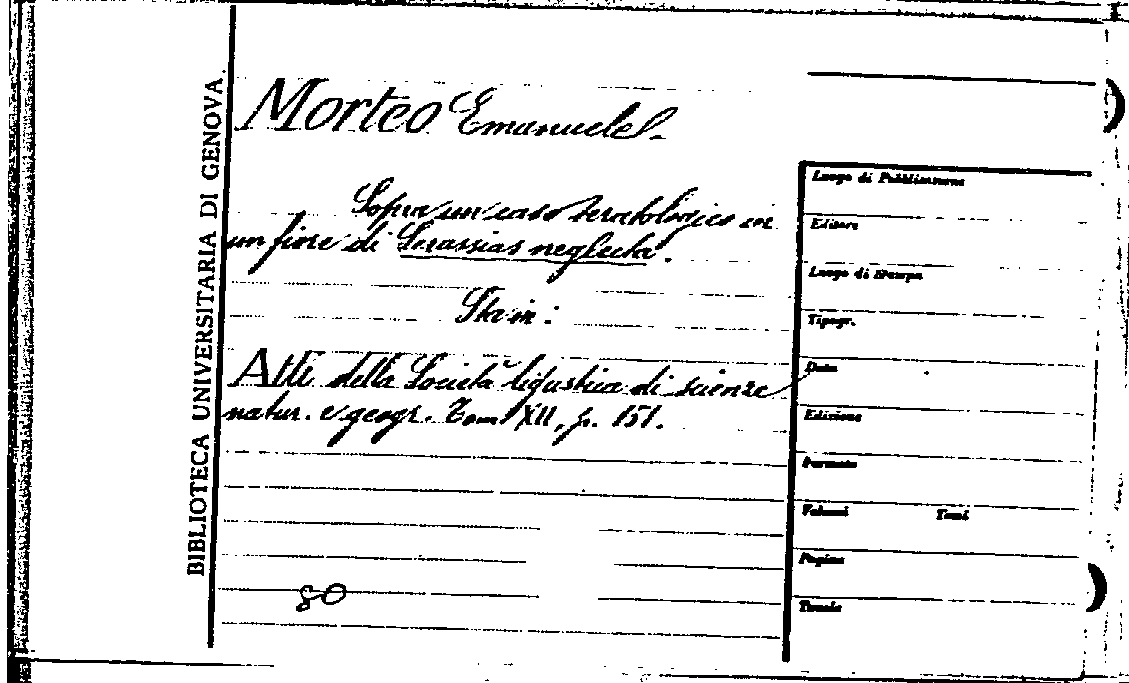 BIBLIOTECA UNIVERSITARIA DI GENOVA.
Morteo Emanuele.
Sopra un caso teratologico in
un fiore di Serassias neglecta.
Sta in:
Atti della Società ligustica di scienze
natur. e geogr. Tom. XII, p. 151.
80
Luogo di Pubblicazione
Editore
Luogo di Stampa
Tipogr.
Data
Edizione
Formato
Volumi Tomi
Pagine
Tavole